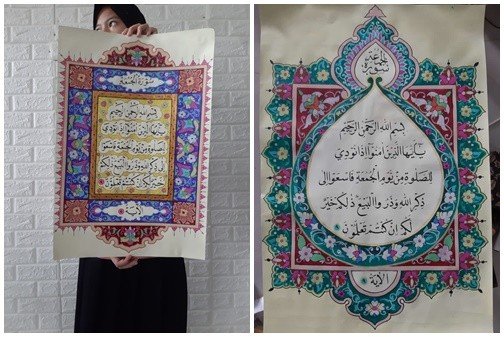 سورة الجمعة
بسم الله الرحمن الرحيم
يأيها الذين امنوا اذا نودي
للصلوة من يوم الجمعة فاسعوا
الى ذكر الله وذروا البيع ذلكم
خير لكم ان كنتم تعلمون
الاية
جمعة
سورة
بسم الله الرحمن الرحيم
يأيها الذين امنوا اذا نودي
للصلوة من يوم الجمعة فاسعوا الى
ذكر الله وذروا البيع ذلكم خير
لكم ان كنتم تعلمون
الاية